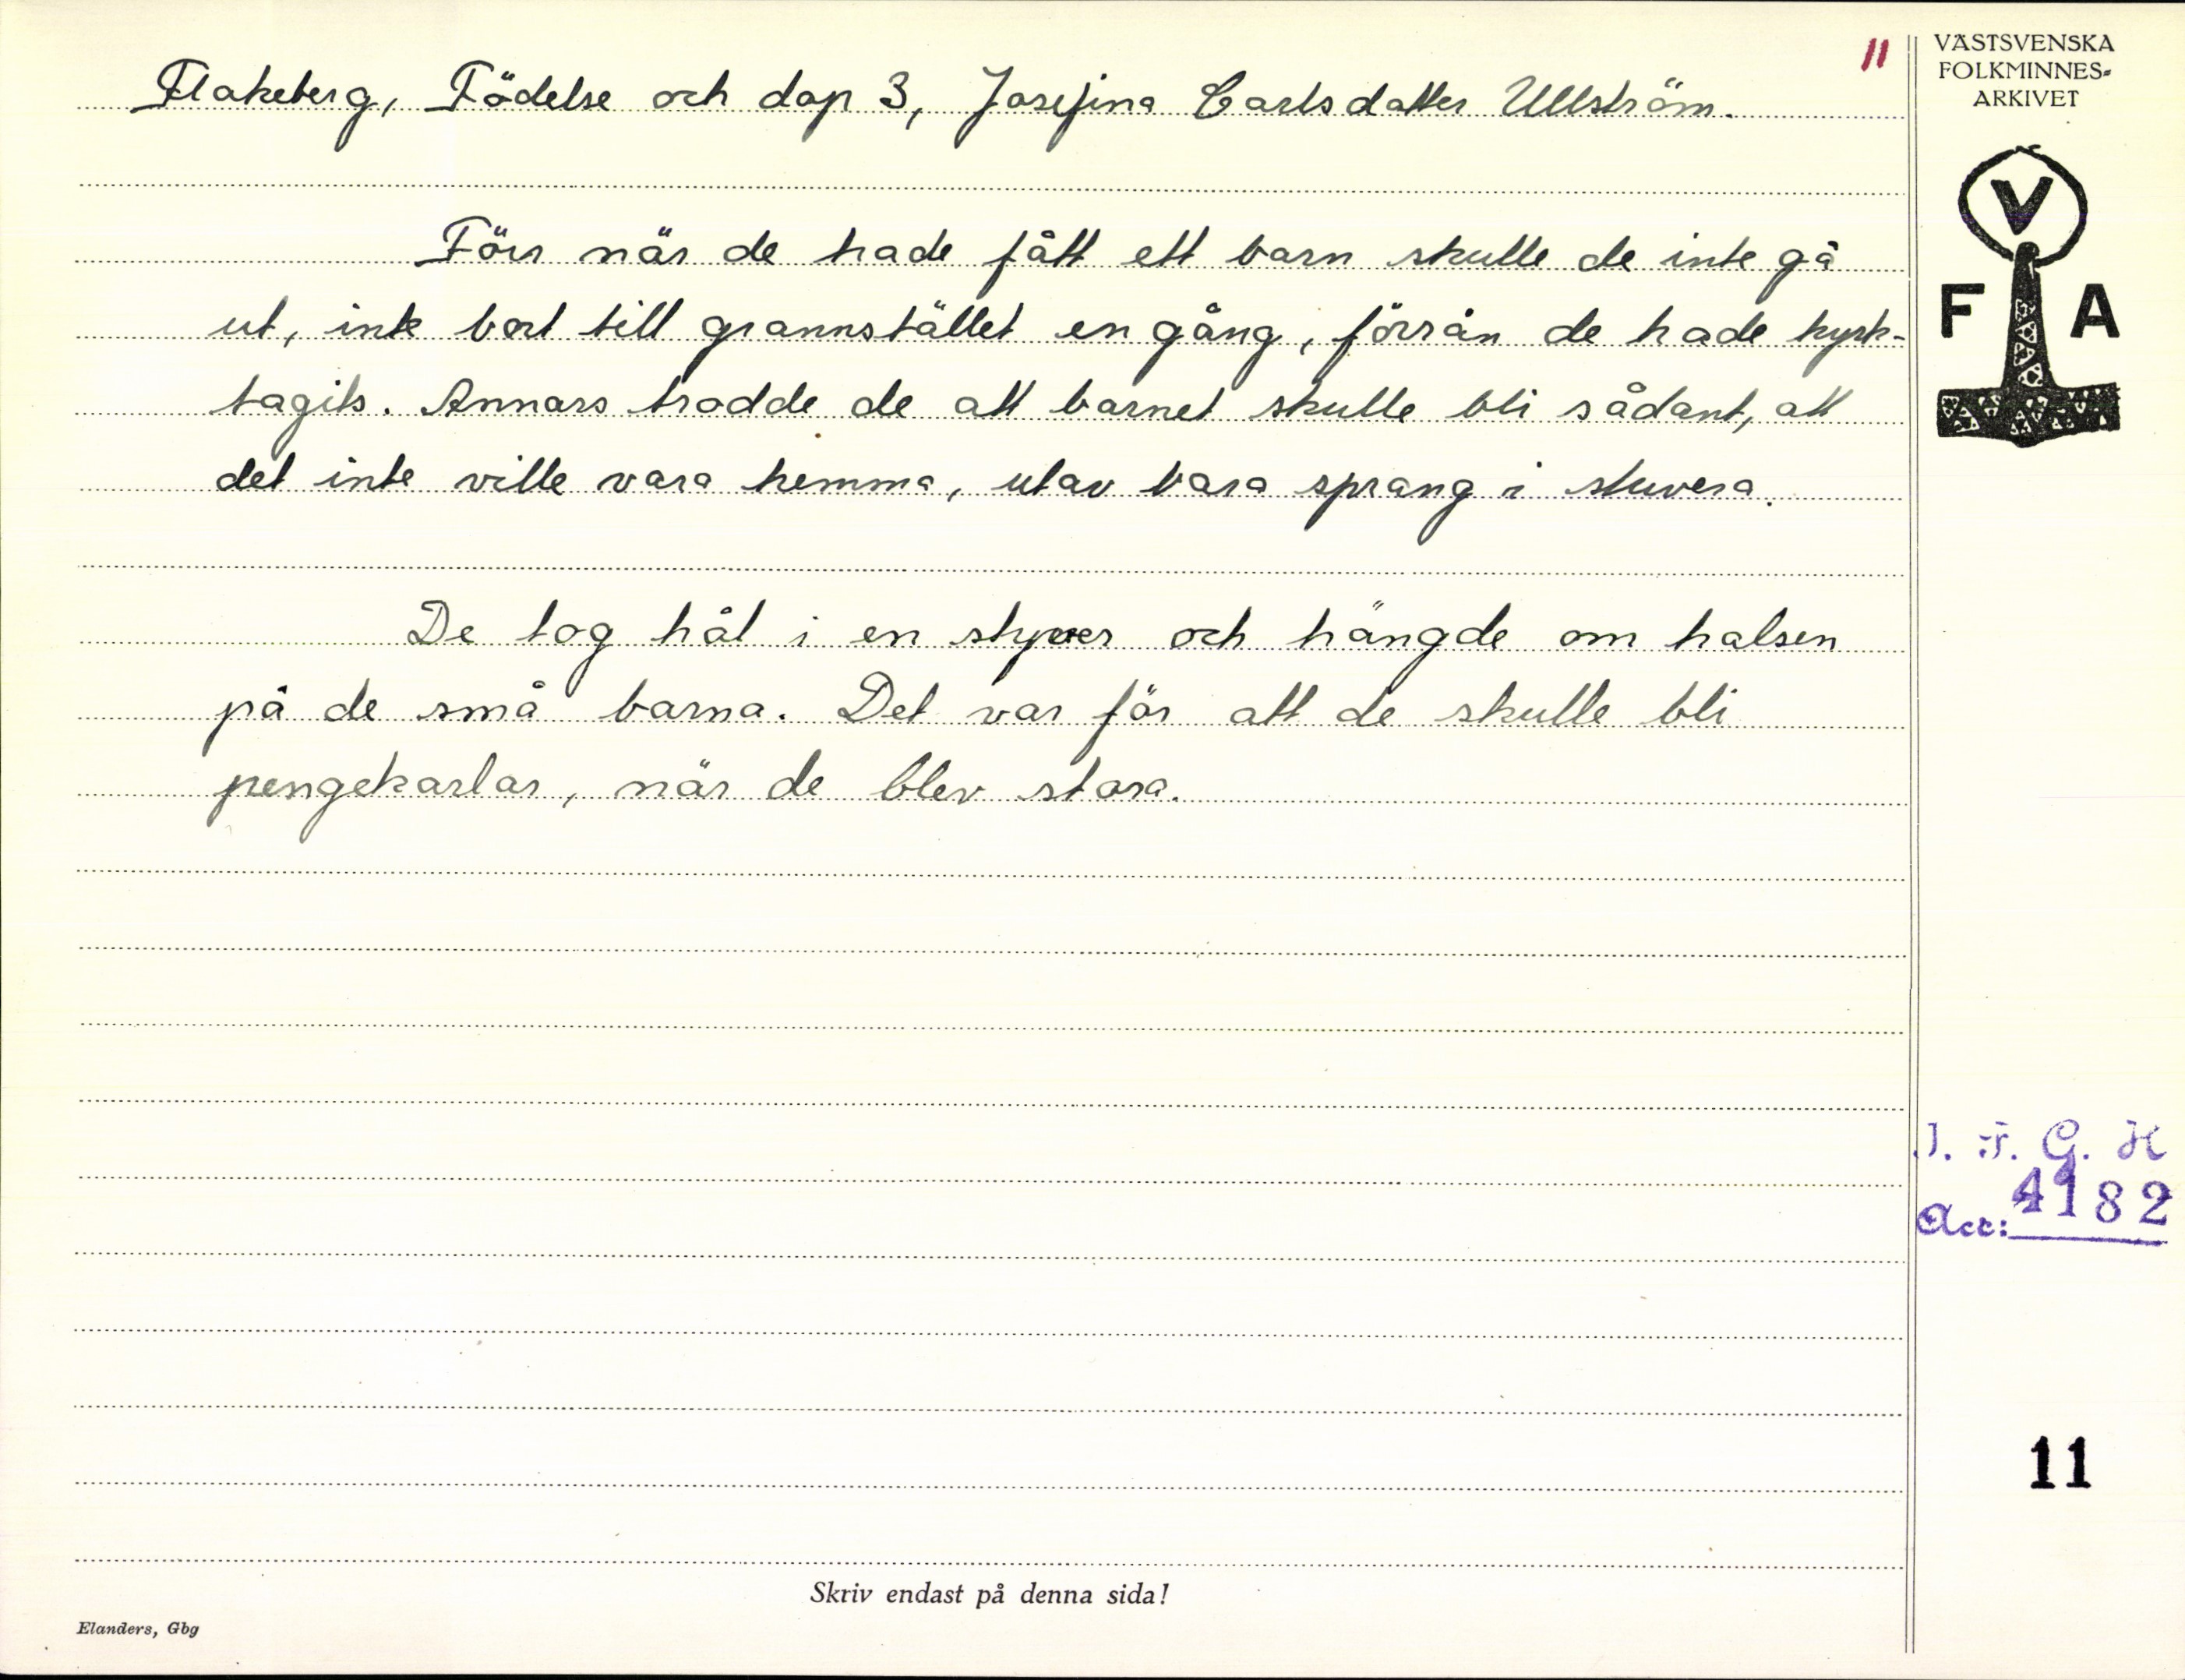 11
Flakeberg, Födelse och dop 3, Josefina Carlsdatter Ullström.
Förr när de hade fått ett barn skulle de inte gå
ut, inte bort till grannstället en gång, förrän de hade kyrk-
tagits. Annars trodde de att barnet skulle bli sådant, att
det inte ville vara hemma, utav bara sprang i stuvera.
De tog hål i en styver och hängde om halsen
på de små barna. Det var för att de skulle bli
pengekarlar, när de blev stora.
Skriv endast på denna sida!
Elanders, Gbg
VÄSTSVENSKA
FOLKMINNES-
ARKIVET
V
F A
I. F. G. H
Acc: 4182
11